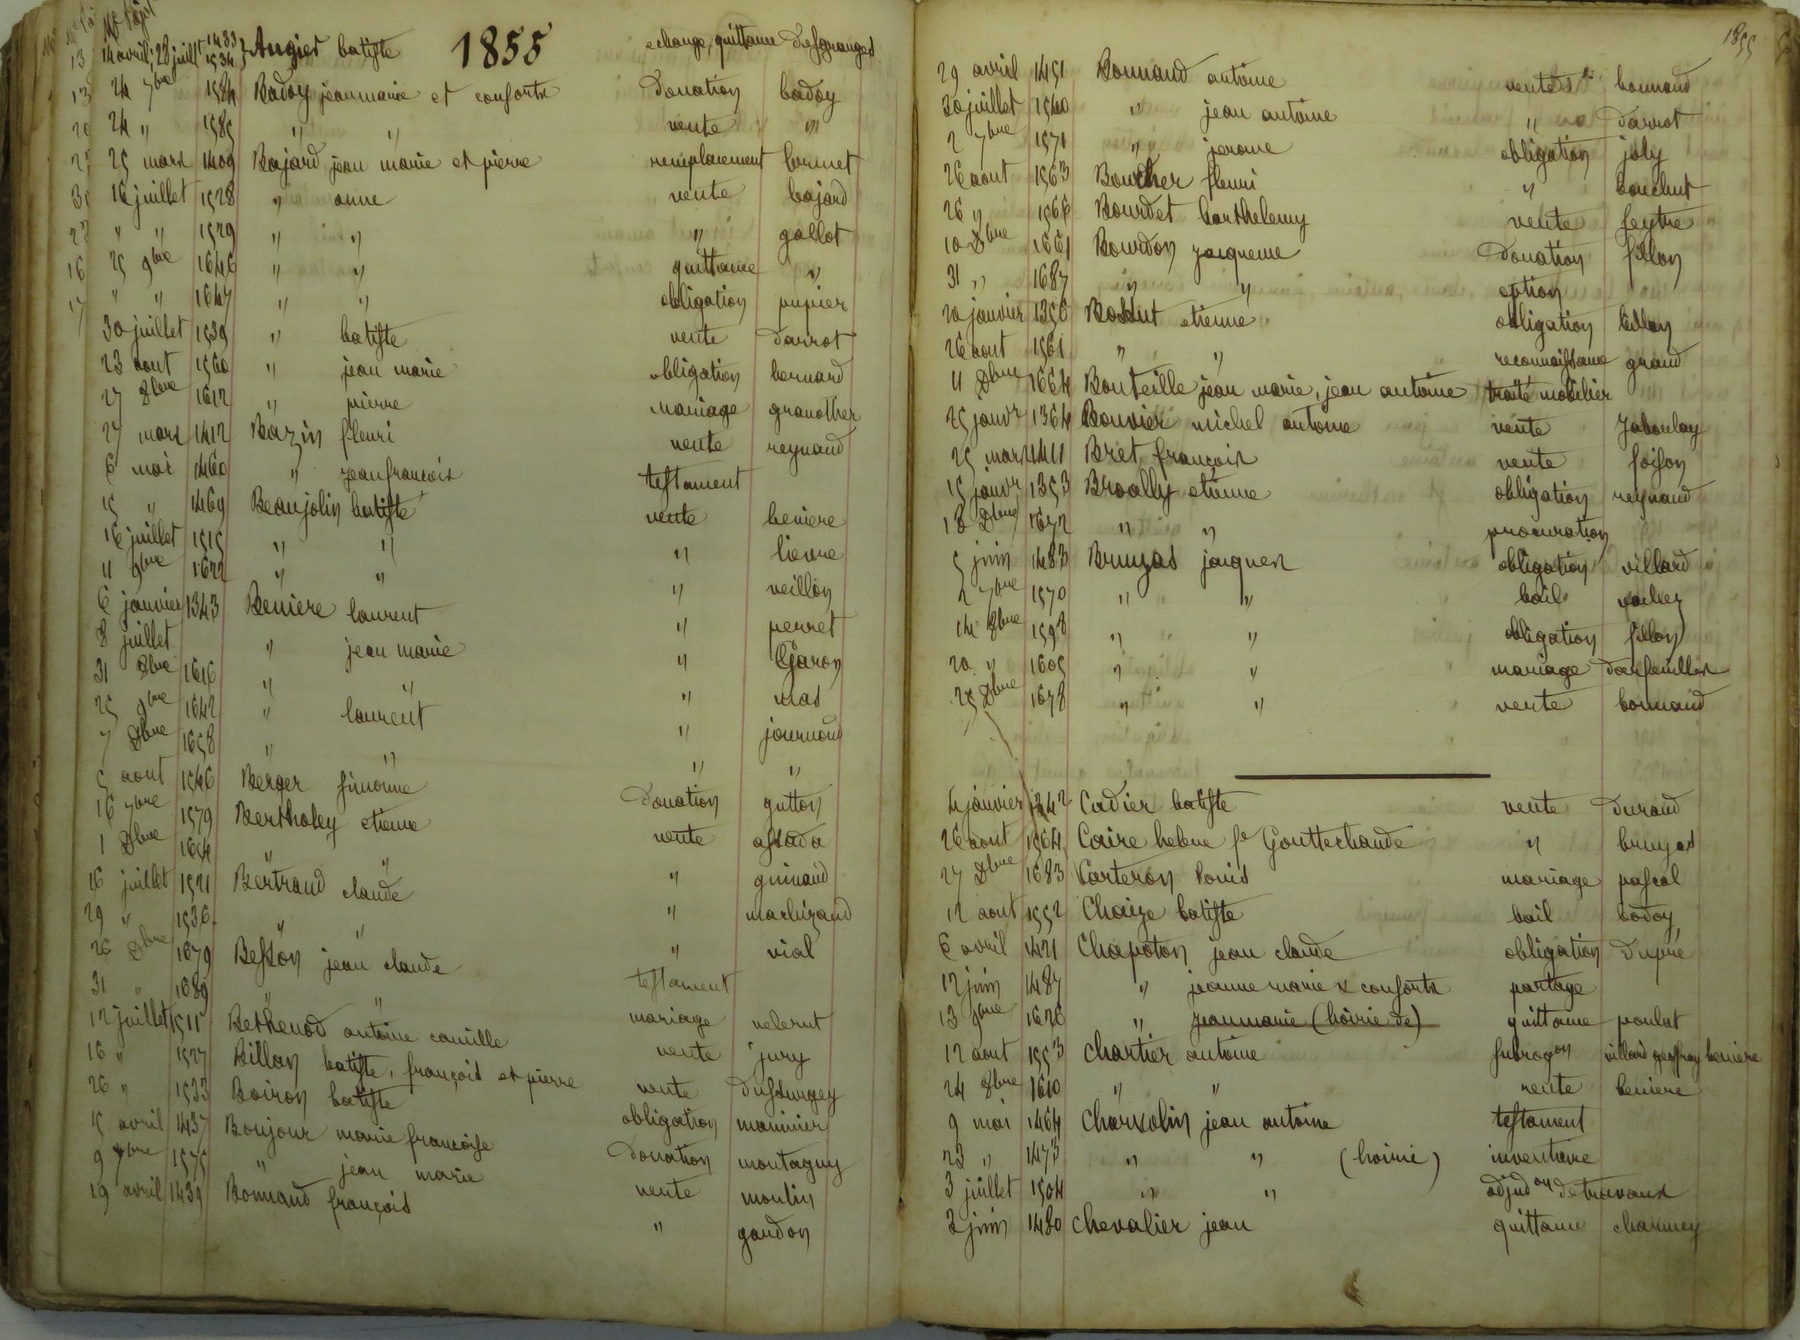 1855
14 avril, 28 juill 1433 1534 Angier batiste echange, quittance Desgranges
13 24 7bre 1584 Badoy jeanmarie et conforts Donation badoy
24 " 1585 " " vente "
25 mars 1409 Bajard jean marie et pierre remplacement brunet
16 juillet 1528 " anne vente bajard
" " 1529 " " " gallot
16 25 9bre 1646 " " quittance "
17 " " 1647 " " obligation pupier
30 juillet 1539 " batiste vente Darrot
23 aout 1560 " jean marie obligation bernard
27 8bre 1612 " pierre mariage granother
27 mars 1412 Bazin fleuri vente reynaud
6 mai 1460 " jean françois testament
15 " 1469 Beaujolin batiste vente beniere
16 juillet 1515 " " "
11 9bre 1622 " " " veillon
6 janvier 1343 Beniere laurent " perret
8 juillet " jean marie "
31 8bre 1616 " " " mas
25 9bre 1642 " laurent " journoud
7 Dbre 1658 " " " "
5 aout 1546 Berger simoine Donation gutton
16 7bre 1579 Bertholey etienne vente
1 Dbre 1654 " " " guinand
16 juillet 1521 Bertrand claude "
29 " 1536 " " " vial
26 Dbre 1679 Besson jean claude testament
31 " 1689 " " mariage
12 juillet 1511 Bethenod antoine camille vente jury
16 " 1527 Billan batiste, françois et pierre vente
26 " 1533 Boiron batiste obligation
15 avril 1437 Boujour marie françoise Donation montagny
9 7bre 1575 " jean marie vente moulin
19 avril 1439 Bonnand françois " gandon
1855
29 avril 1451 Bonnand antoine bonnand
30 juillet 1540 " jean antoine " Darrot
2 7bre 1571 " jerome obligation joly
26 aout 1563 Boucher fleuri " bouchut
26 " 1566 Bourdet barthelemy vente feytre
10 Dbre 1661 Bourdon jacqueme Donation fillon
31 " 1687 " " option
20 janvier 1356 Bossut etienne obligation
26 aout 1561 " " reconnaissance grand
11 Dbre 1664 Bouteille jean marie, jean antoine traité mobilier
25 janvr 1364 Bouvier michel antoine vente Jaboulay
25 mars 1411 Bret françois vente foison
15 janvr 1353 Broally etienne obligation reynaud
18 Dbre 1672 " " procuration
5 juin 1483 Bruyas jacques obligation villard
2 7bre 1570 " " bail
14 8bre 1598 " " obligation fillon
20 " 1605 " " mariage Dorfeuilles
25 Dbre 1678 " " vente bonnand
4 janvier 1342 Cadier batiste vente Durand
26 aout 1564 Caire helene fe Gouttechaude " bruyas
27 Dbre 1683 Carteron louis mariage pascal
12 aout 1552 Chaize batiste bail badoy
6 avril 1421 Chapoton jean claude obligation Dupré
12 juin 1487 " jeanne marie & conforts partage
13 9bre 1626 " jean marie (hoirie de) quittance poulat
12 aout 1553 Chartier antoine subrogon villard geoffray beniere
24 8bre 1610 " " vente beniere
9 mai 1464 Charsolin jean antoine testament
23 " 1473 " " (hoirie) inventaire
3 juillet 1504 " " adjudon de travaux
2 juin 1480 Chevalier jean quittance charmey